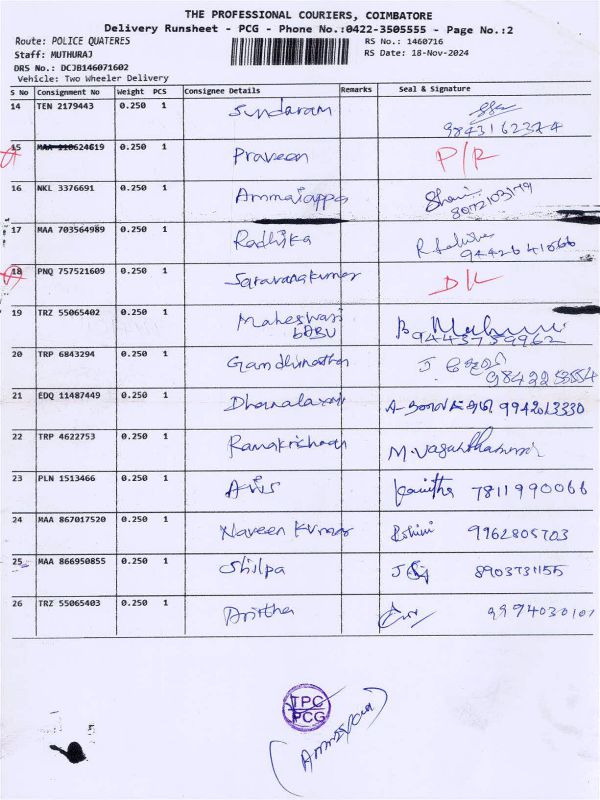 THE PROFESSIONAL COURIERS, COIMBATORE
Delivery Runsheet - PCG - Phone No.:0422-3505555 - Page No.:2
Route: POLICE QUATERES RS No.: 1460716
Staff: MUTHURAJ RS Date: 18-Nov-2024
DRS No.: DCJB146071602
Vehicle: Two Wheeler Delivery
S No Consignment No Weight PCS Consignee Details Remarks Seal & Signature
14 TEN 2179443 0.250 1 Sundaram
9843162344
15 MAA 110624619 0.250 1 Praveen P/R
16 NKL 3376691 0.250 1 Ammaiappa
8072103179
17 MAA 703564989 0.250 1 Radhika
9442641666
18 PNQ 757521609 0.250 1 Saravanakumar D/L
19 TRZ 55065402 0.250 1 Maheswari
babu 9443759962
20 TRP 6843294 0.250 1 Gandhimathi J
21 EDQ 11487449 0.250 1 Dhanalaxmi 9942013330
22 TRP 4622753 0.250 1 Ramakrishnan
23 PLN 1513466 0.250 1 Kavitha 7811990066
24 MAA 867017520 0.250 1 Naveen Kumar 9962805703
25 MAA 866950855 0.250 1 Shilpa 8903731155
26 TRZ 55065403 0.250 1 9994030101
TPC
PCG